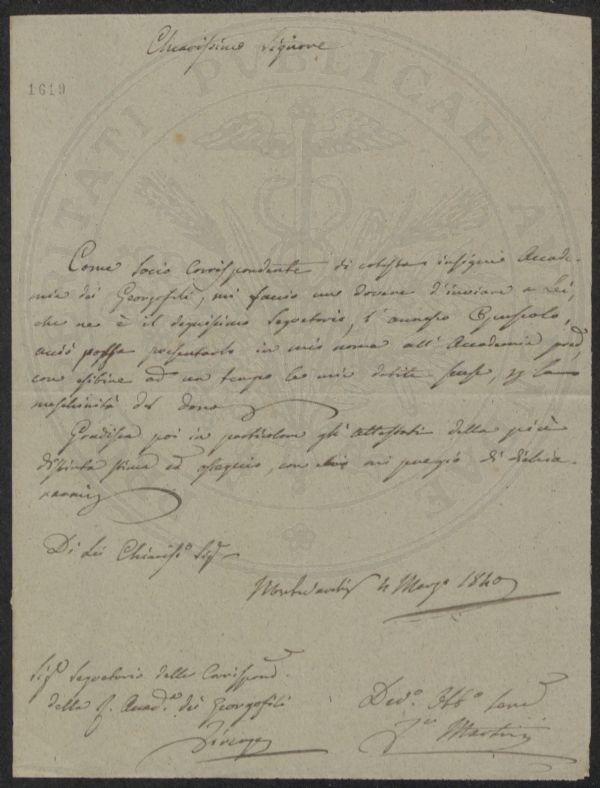 Chiarissimo Signore
1619
Come Socio Corrispondente di cotesta insigne Accade-
mia dei Georgofili, mi faccio un dovere d'inviare a Lei,
che ne è il degnissimo Segretario, l'annesso Opuscolo,
acciò possa presentarlo in mio nome all'Accademia pred.
con esibire ad un tempo le mie debite scuse, per la
meschinità del dono
Gradisca poi in particolare gli attestati della più
distinta stima ed ossequio, con cui mi pregio di dichia-
rarmi
Di Lei Chiariss.o Sig.
4 Marzo 1840
Sig. Segretario delle Corrispond.
della Accad.a dei Georgofili
Firenze
Dev.o Obb.o Serv.
Martini